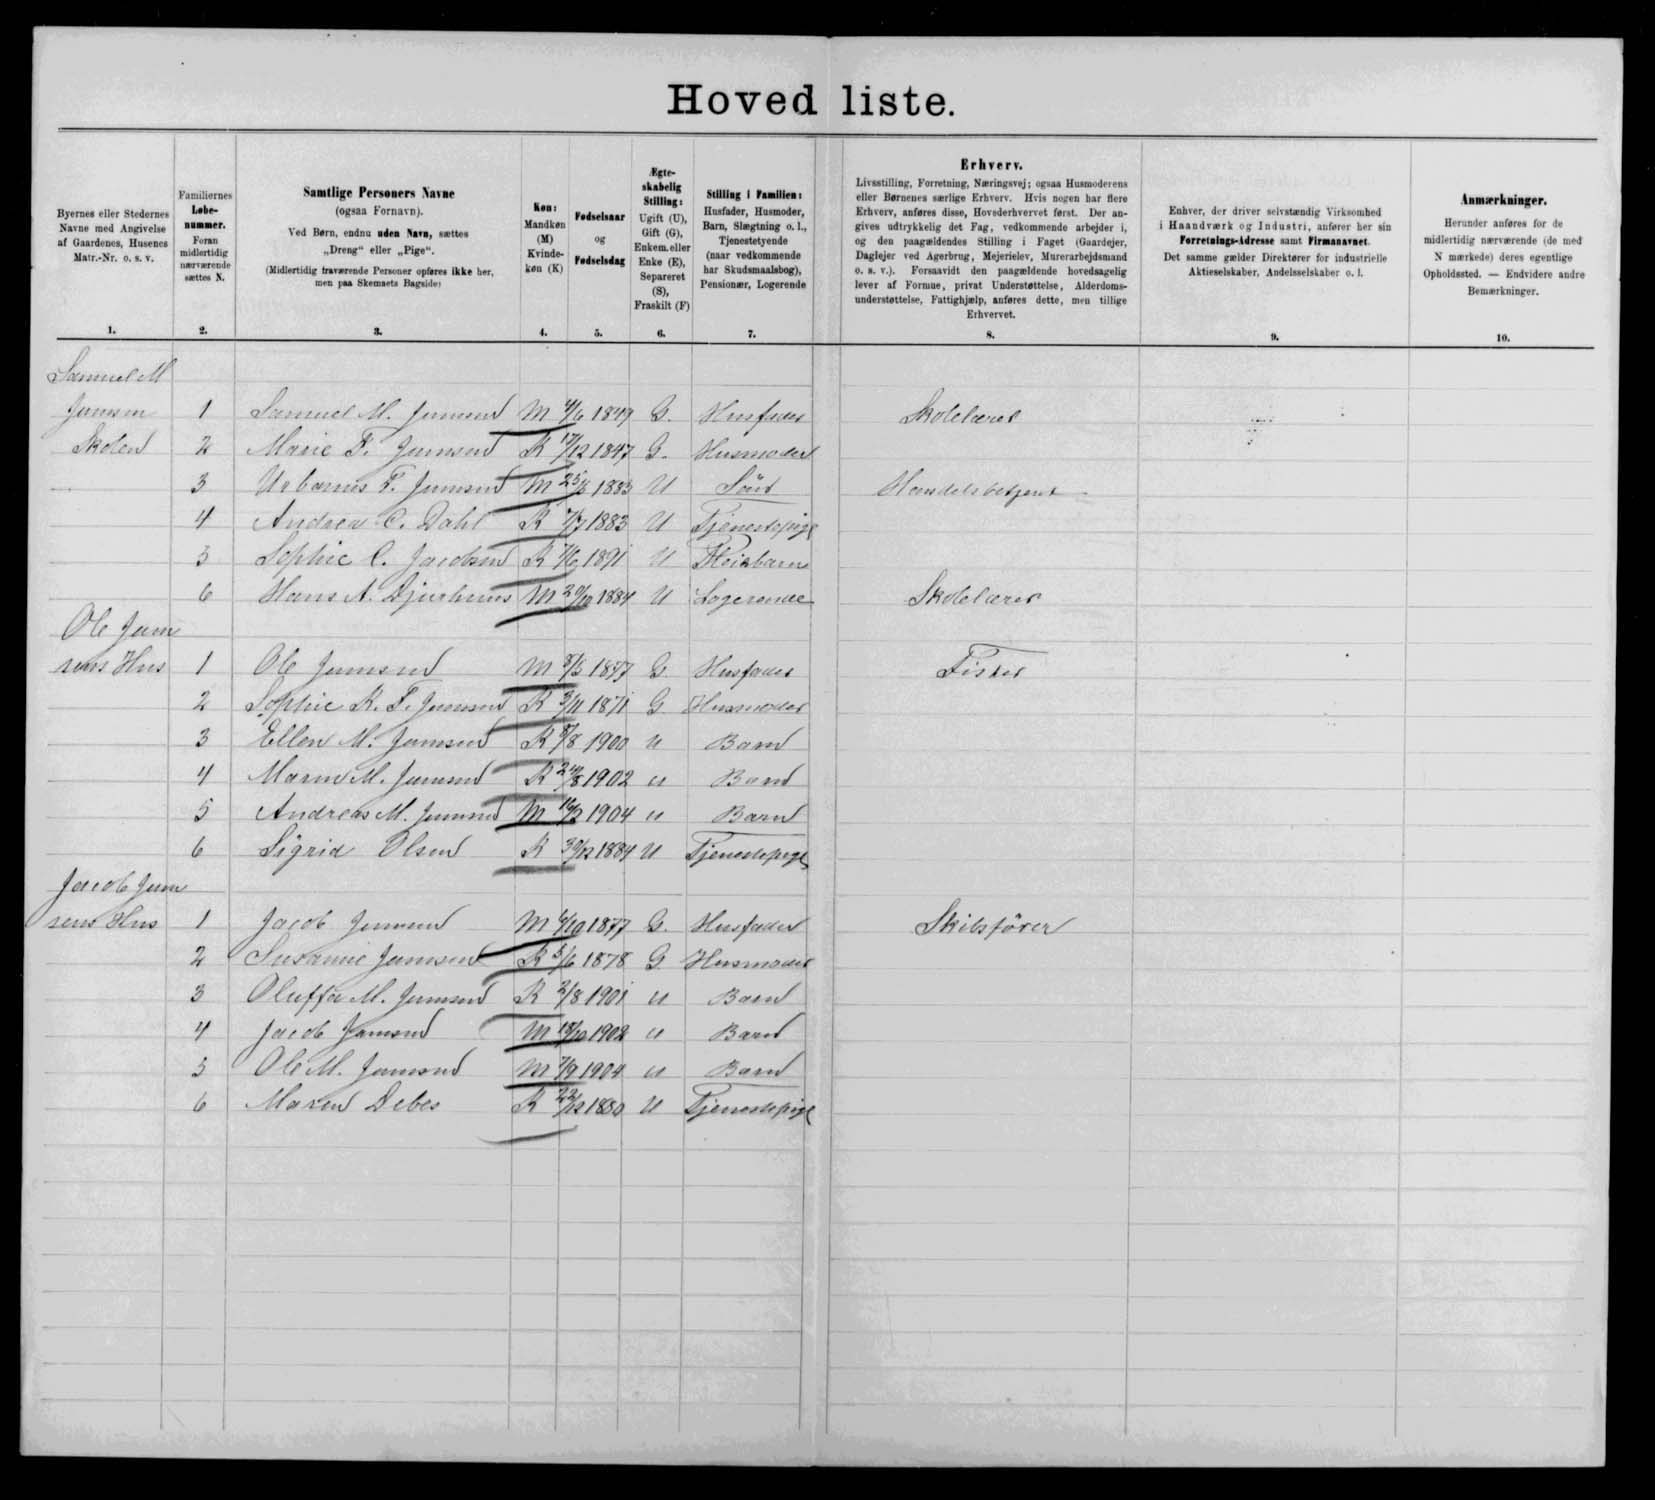 Hoved liste.
Byernes eller Stedernes Navne med Angivelse af Gaardenes, Husenes Matr.-Nr. o. s. v.
Familiernes Løbe-nummer. Foran midlertidig nærværende sættes N.
Samtlige Personers Navne
(ogsaa Fornavn).
Ved Børn, endnu uden Navn, sættes
„Dreng“ eller „Pige“.
(Midlertidig fraværende Personer opføres ikke her,
men paa Skemaets Bagside)
Køn: Mandkøn (M) Kvinde-køn (K)
Fødselsaar og Fødselsdag
Ægte-skabelig Stilling: Ugift (U), Gift (G), Enkem. eller Enke (E), Separeret (S), Fraskilt (F)
Stilling i Familien:
Husfader, Husmoder,
Barn, Slægtning o. l.,
Tjenestetyende
(naar vedkommende
har Skudsmaalsbog),
Pensionær, Logerende
Erhverv.
Livsstilling, Forretning, Næringsvej; ogsaa Husmoderens
eller Børnenes særlige Erhverv. Hvis nogen har flere
Erhverv, anføres disse, Hovederhvervet først. Der an-
gives udtrykkelig det Fag, vedkommende arbejder i,
og den paagældendes Stilling i Faget (Gaardejer,
Daglejer ved Agerbrug, Mejerielev, Murerarbejdsmand
o. s. v.). Forsaavidt den paagældende hovedsagelig
lever af Formue, privat Understøttelse, Alderdoms-
understøttelse, Fattighjælp, anføres dette, men tillige
Erhvervet.
Enhver, der driver selvstændig Virksomhed
i Haandværk og Industri, anfører her sin
Forretnings-Adresse samt Firmanavnet.
Det samme gælder Direktører for industrielle
Aktieselskaber, Andelsselskaber o. l.
Anmærkninger.
Herunder anføres for de
midlertidig nærværende (de med
N mærkede) deres egentlige
Opholdssted. — Endvidere andre
Bemærkninger.
1. 2. 3. 4. 5. 6. 7. 8. 9. 10.
Samuel M
Joensen 1 Samuel M. Joensen M 4/6 1849 G. Husfader Skolelærer
Skolen 2 Marie F. Joensen K 17/12 1847 G. Husmoder
3 Urbanus F. Joensen M 1883 U Sön Handelsbetjent
4 Andrea C. Dahl K 1883 U Tjenestepige
5 Sophie C. Jacobsen K 1/6 1891 U Pleiebarn
6 Hans A. Djurhuus M 1884 U Logerende Skolelærer
Ole Joen
sens Hus 1 Ole Joensen M 1877 G Husfader Fisker
2 Sophie K. F. Joensen K 3/11 1871 G. Husmoder
3 Ellen M. Joensen K 1900 U Barn
4 Maren M. Joensen K 24/8 1902 U Barn
5 Andreas M. Joensen M 1904 U Barn
6 Sigrid Olsen K 30/12 1884 U Tjenestepige
Jacob Joen
sens Hus 1 Jacob Joensen M 1877 G. Husfader Skibsfører
2 Susanne Joensen K 1878 G. Husmoder
3 Oluffa M. Joensen K 2/8 1901 U Barn
4 Jacob Joensen M 18/10 1902 U Barn
5 Ole M. Joensen M 7/9 1904 U Barn
6 Maren Debes K 22/12 1880 U Tjenestepige